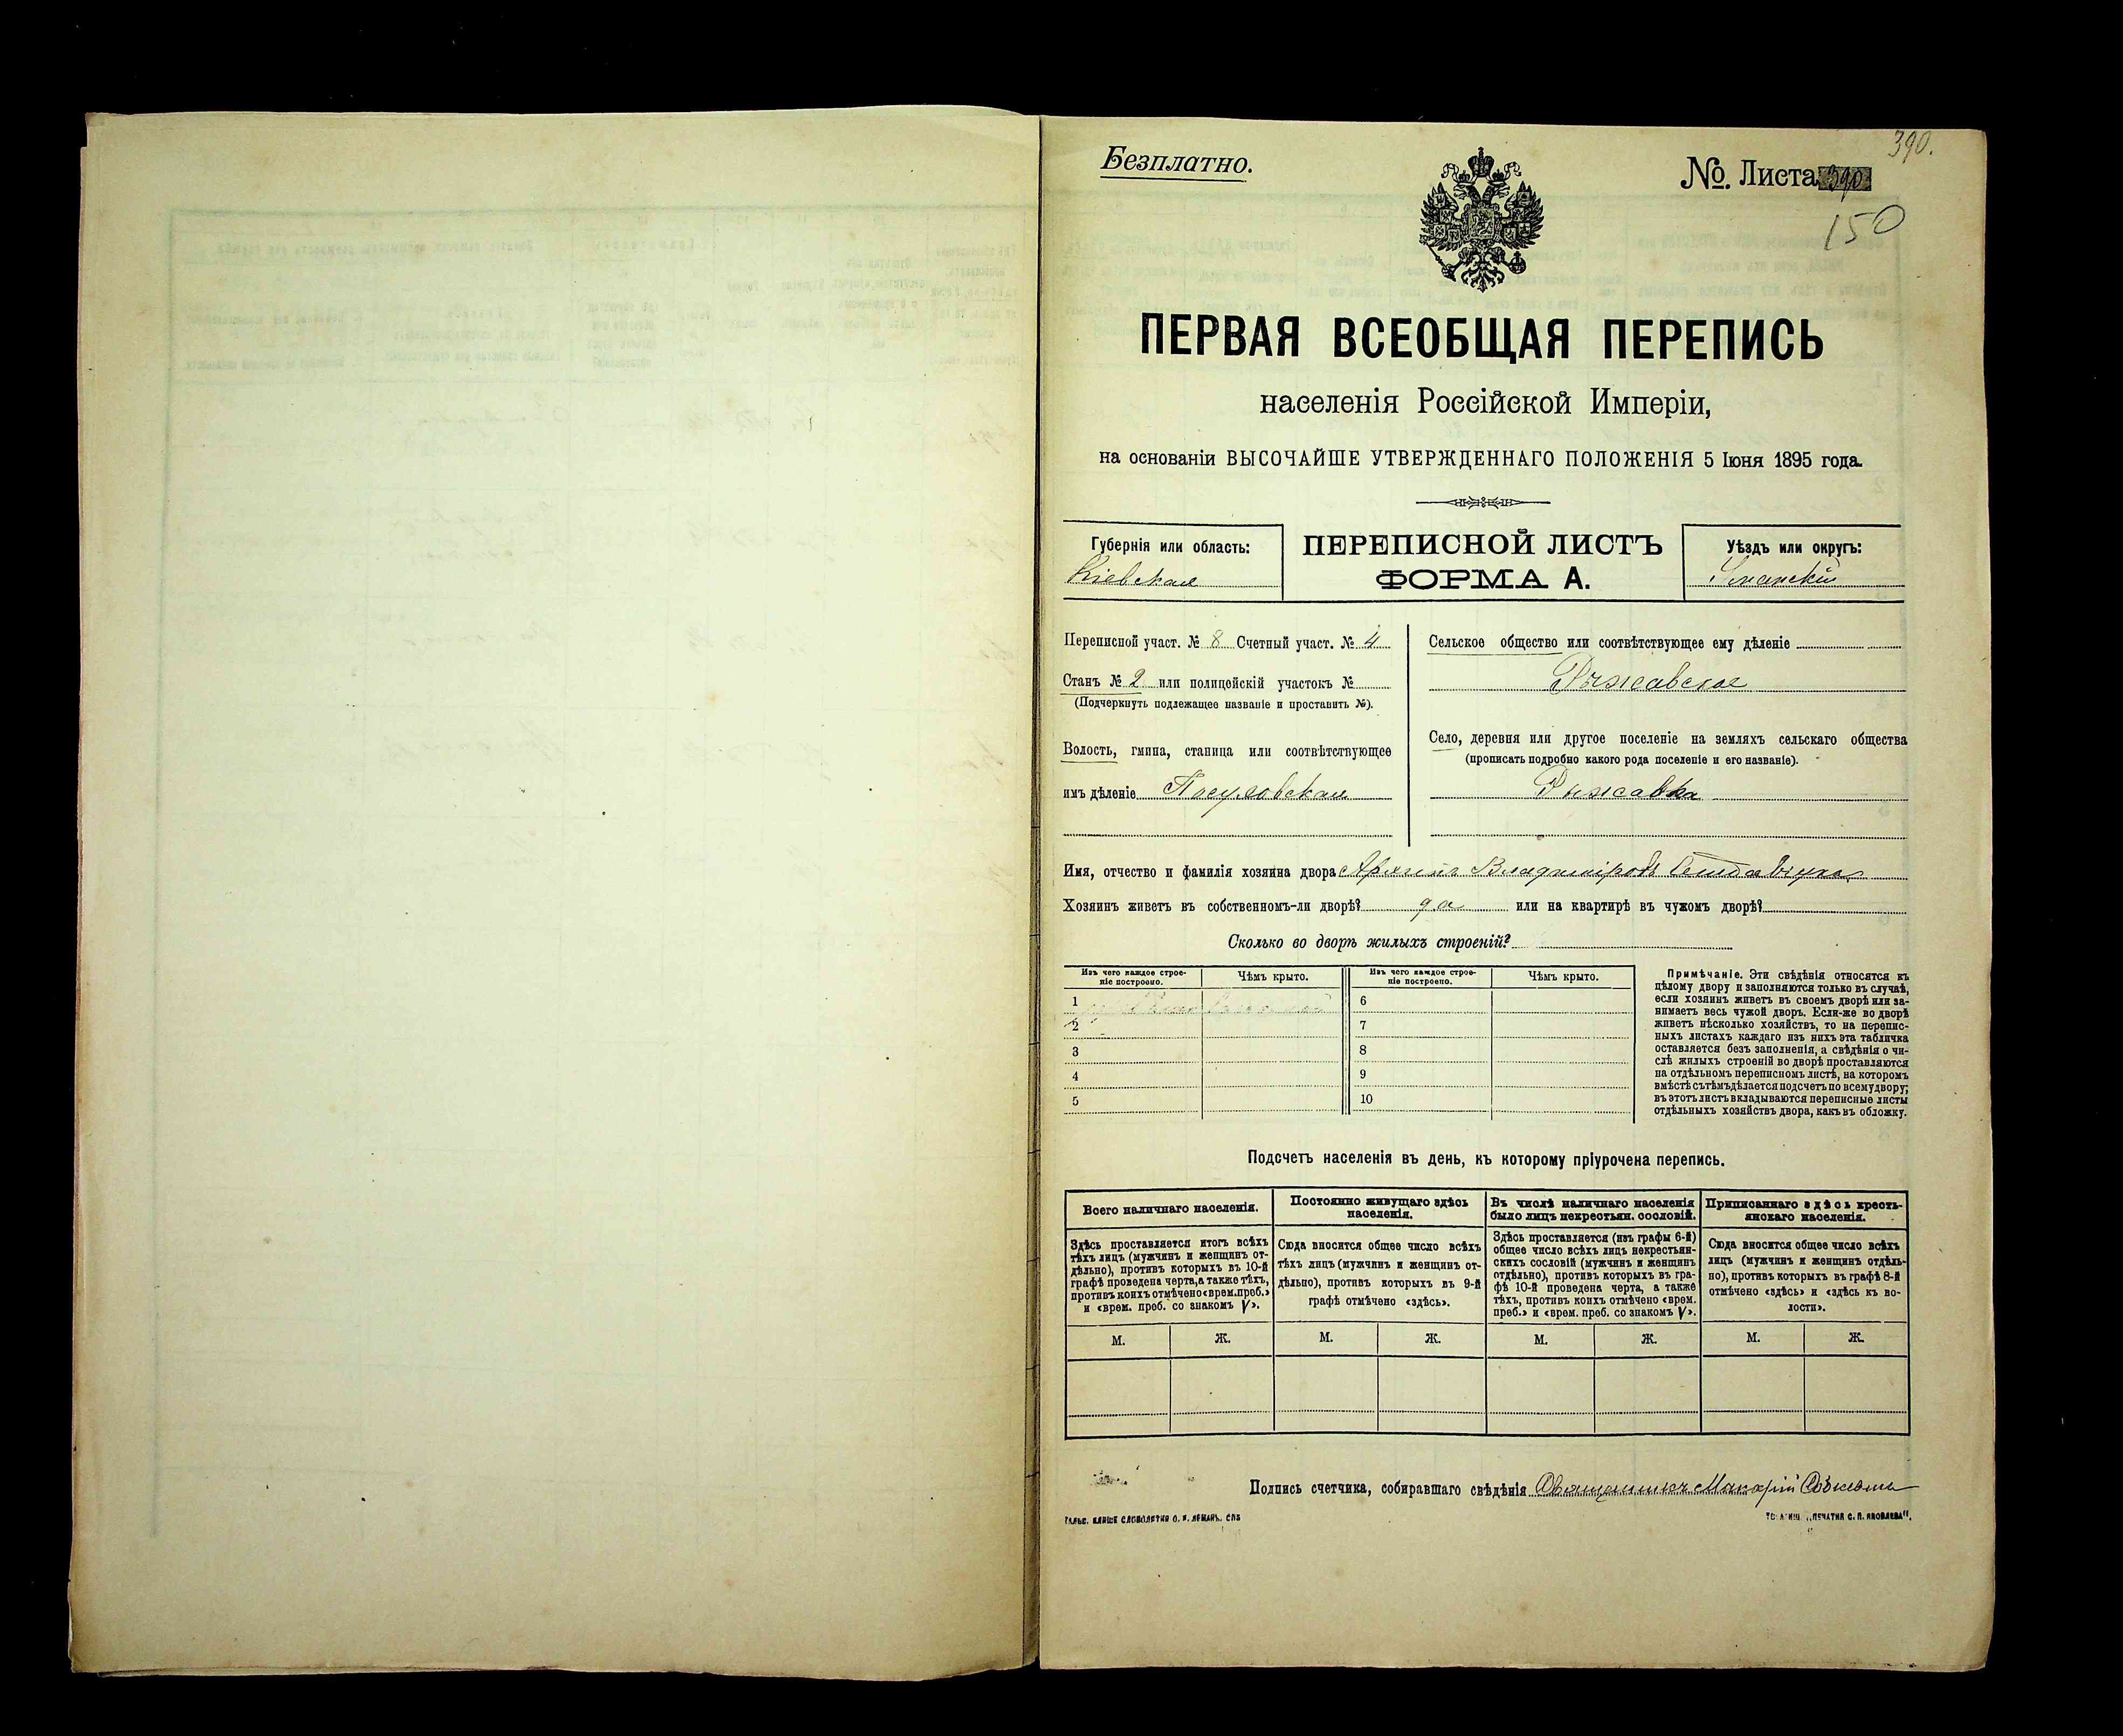 390.
Безплатно.
№. Листа 390
150
ПЕРВАЯ ВСЕОБЩАЯ ПЕРЕПИСЬ
населенія Россійской Имперіи,
на основаніи ВЫСОЧАЙШЕ УТВЕРЖДЕННАГО ПОЛОЖЕНІЯ 5 Іюня 1895 года.
Губернія или область:
Кіевская
ПЕРЕПИСНОЙ ЛИСТЪ
ФОРМА А.
Уѣздъ или округъ:
Уманскій
Переписной участ. № 8 Счетный участ. № 4
Станъ № 2 или полицейскій участокъ №
(Подчеркнуть подлежащее названіе и проставить №).
Волость, гмина, станица или соотвѣтствующее
имъ дѣленіе
Сельское общество или соотвѣтствующее ему дѣленіе
Рыжавское
Село, деревня или другое поселеніе на земляхъ сельскаго общества
(прописать подробно какого рода поселеніе и его названіе).
Рыжавка
Имя, отчество и фамилія хозяина двора Владиміровъ
Хозяинъ живетъ въ собственномъ-ли дворѣ? да или на квартирѣ въ чужомъ дворѣ?
Сколько во дворѣ жилыхъ строеній?
Изъ чего каждое строе-
ніе построено.
Чѣмъ крыто.
Изъ чего каждое строе-
ніе построено.
Чѣмъ крыто.
1
2
3
4
5
6
7
8
9
10
Примѣчаніе. Эти свѣдѣнія относятся къ
цѣлому двору и заполняются только въ случаѣ,
если хозяинъ живетъ въ своемъ дворѣ или за-
нимаетъ весь чужой дворъ. Если-же во дворѣ
живетъ нѣсколько хозяйствъ, то на перепис-
ныхъ листахъ каждаго изъ нихъ эта табличка
оставляется безъ заполненія, а свѣдѣнія о чи-
слѣ жилыхъ строеній во дворѣ проставляются
на отдѣльномъ переписномъ листѣ, на которомъ
вмѣстѣ съ тѣмъ дѣлается подсчетъ по всему двору;
въ этотъ листъ вкладываются переписные листы
отдѣльныхъ хозяйствъ двора, какъ въ обложку.
Подсчетъ населенія въ день, къ которому пріурочена перепись.
Всего наличнаго населенія.
Здѣсь проставляется итогъ всѣхъ
тѣхъ лицъ (мужчинъ и женщинъ от-
дѣльно), противъ которыхъ въ 10-й
графѣ проведена черта, а также тѣхъ,
противъ коихъ отмѣчено «врем. преб.»
и «врем. преб. со знакомъ V».
М. Ж.
Постоянно живущаго здѣсь
населенія.
Сюда вносится общее число всѣхъ
тѣхъ лицъ (мужчинъ и женщинъ от-
дѣльно), противъ которыхъ въ 9-й
графѣ отмѣчено «здѣсь».
М. Ж.
Въ числѣ наличнаго населенія
было лицъ некрестьян. сословій.
Здѣсь проставляется (изъ графы 6-й)
общее число всѣхъ лицъ некрестьян-
скихъ сословій (мужчинъ и женщинъ
отдѣльно), противъ которыхъ въ гра-
фѣ 10-й проведена черта, а также
тѣхъ, противъ коихъ отмѣчено «врем.
преб.» и «врем. преб. со знакомъ V».
М. Ж.
Приписаннаго здѣсь кресть-
янскаго населенія.
Сюда вносится общее число всѣхъ
лицъ (мужчинъ и женщинъ отдѣль-
но), противъ которыхъ въ графѣ 8-й
отмѣчено «здѣсь» и «здѣсь къ во-
лости».
М. Ж.
Подпись счетчика, собиравшаго свѣдѣнія Священникъ Макарій